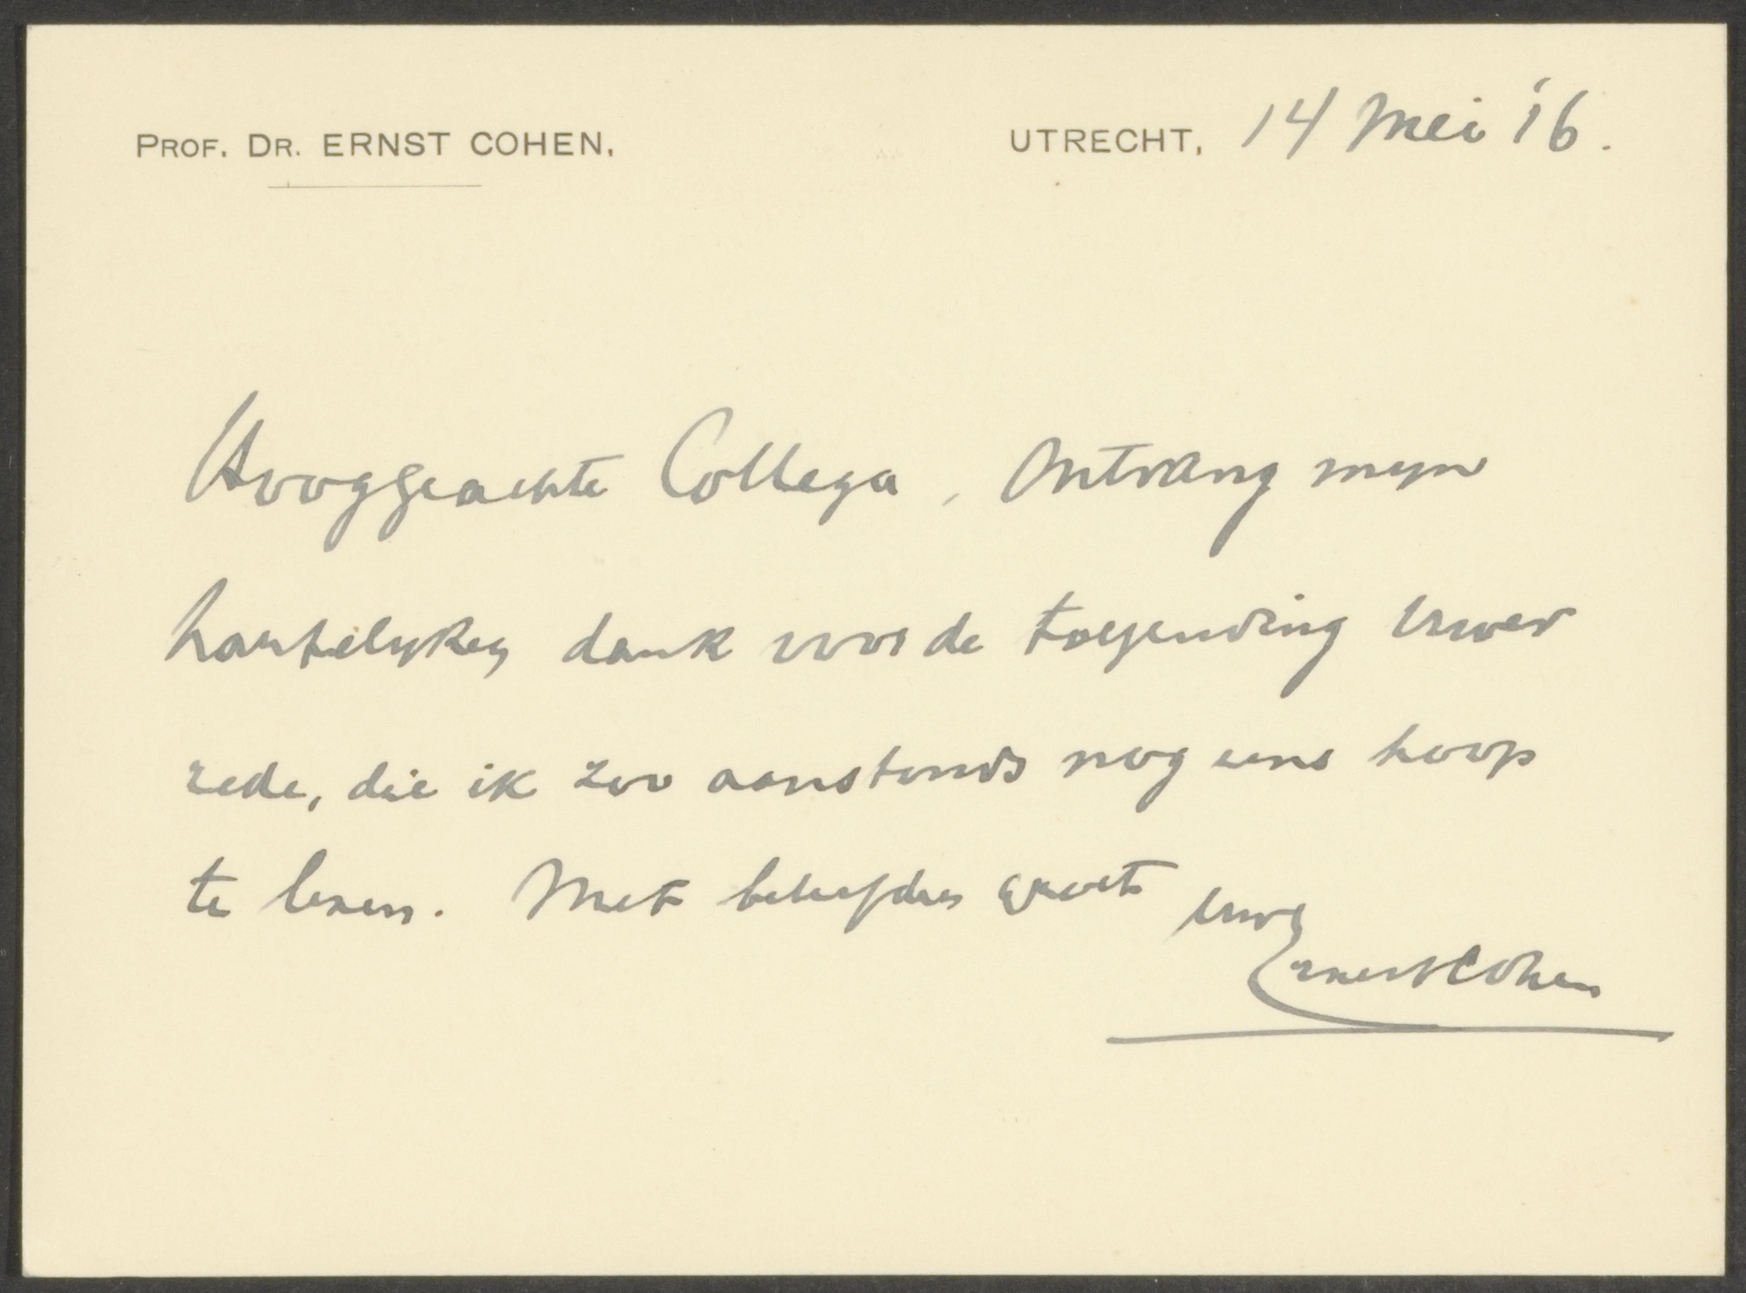 PROF. DR. ERNST COHEN, UTRECHT, 14 Mei '16.
Hooggeachte Collega, Ontvang mijn
hartelijken dank voor de toezending Uwer
rede, die ik zoo aanstonds nog eens hoop
te lezen. Met beleefden groet Uwe
Ernst Cohen